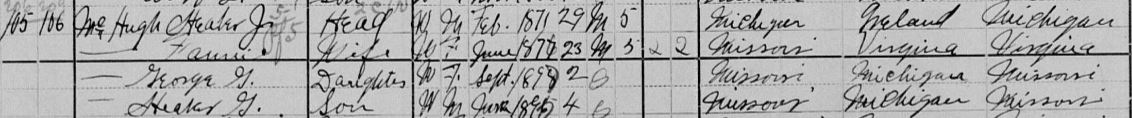 105 106 Mc Hugh Heaker Jr Head W M Feb. 1871 29 M 5 Michigan Ireland Michigan
— Fannie Wife W F June 1876 23 M 5 2 2 Missouri Virginia Virginia
— George G. Daughter W F Sept. 1897 2 S Missouri Michigan Missouri
— Heaker G. Son W M June 1895 4 S Missouri Michigan Missouri